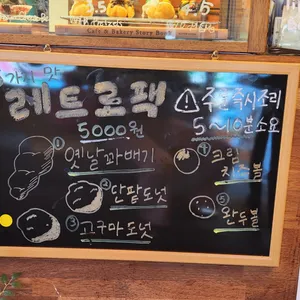 Cafe & Bakery Story Book
가지 맛
레트로팩
5000원
⚠ 주문즉시조리
5~10분소요
① 옛날꽈배기
② 단팥도넛
③ 고구마도넛
④ 크림치즈볼
⑤ 완두볼